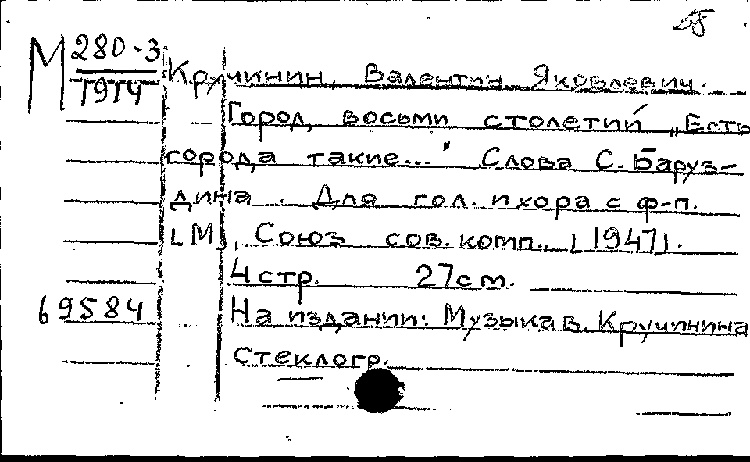 М 280-3
1914
Кручинин, Валентин Яковлевич.
Город восьми столетий „Есть
города такие..." Слова С. Баруз-
дина. Для гол. и хора с ф-п.
[М], Союз сов. комп., [1947].
4 стр. 27 см.
69584 На издании: Музыка В. Кручинина
Стеклогр.